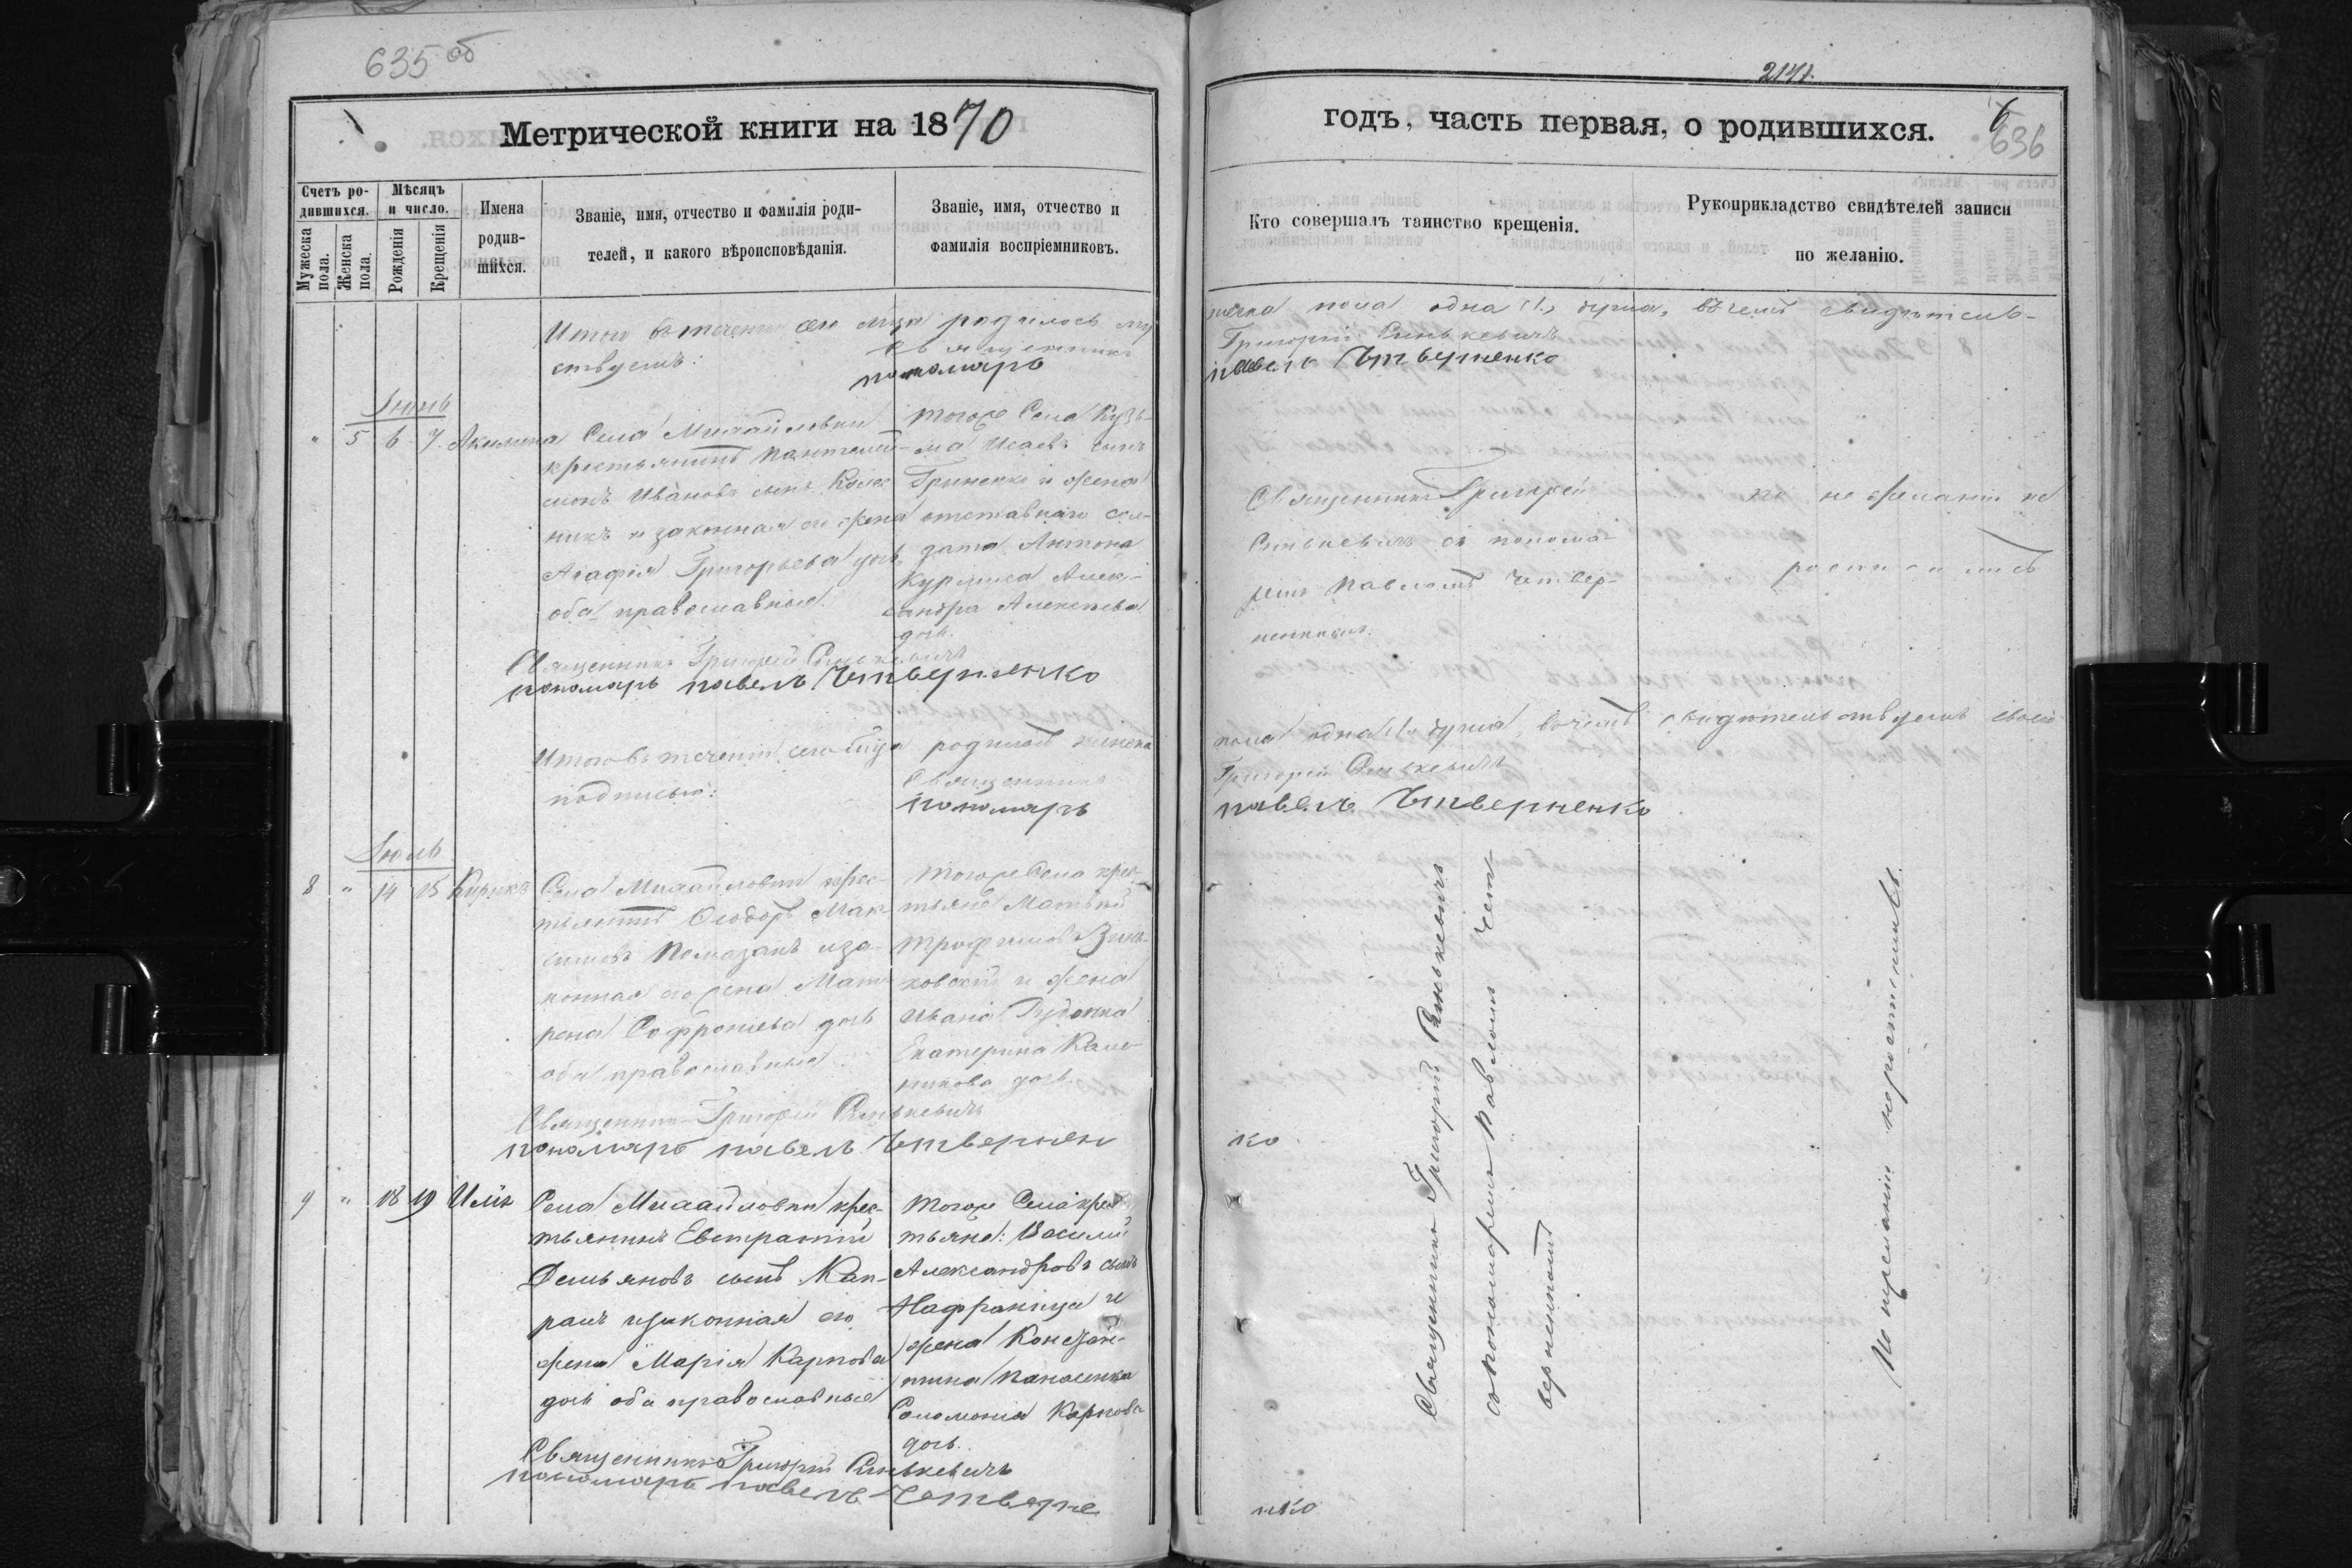 635 об
Метрической книги на 1870
Счетъ ро-
дившихся.
Мужеска
пола.
Женска
пола.
Мѣсяцъ
и число.
Рожденія
Крещенія
Имена
родив-
шихся.
Званіе, имя, отчество и фамилія роди-
телей, и какого вѣроисповѣданія.
Званіе, имя, отчество и
фамилія воспріемниковъ.
Итого въ теченіи сего родилось
ствуемъ:
Священникъ
пономарь
Іюнь
" 5 6 7 Акилина
Села Михайловки
крестьянинъ Пантелей-
монъ Ивановъ сынъ
никъ и законная его жена
Агафія Григорьева дочь
оба православные.
тогоже Села Кузь-
ма Исаевъ сынъ
Гриненко и жена
отставнаго сол-
дата Антона
Алек-
сандра Алексѣева
дочь.
Священникъ Григорій Синькевичъ
пономарь павелъ Четверненко
Итого въ теченіи сего родилось женска
подписью:
Священникъ
пономарь
Іюль
8 " 14 15 Кирикъ
Села Михайловки крес-
тьянинъ Ѳеодоръ Мак-
симовъ Помазанъ и за-
конная его жена Мат-
рена Софроніева дочь
оба православные
тогоже Села крес-
тьяне Матвѣй
Трофимовъ Зинь-
ковскій и жена
Ивана Гудонка
Екатерина Кале-
никова дочь.
Священникъ Григорій Синькевичъ
пономарь павелъ Четвернен
9 " 18 19 Илія
Села Михайловки крес-
тьянинъ Евстратій
Демьяновъ сынъ Кап-
ранъ и законная его
жена Марія Карпова
дочь оба православные
тогоже Села крес-
тьяне: Василій
Александровъ сынъ
и
жена Констан-
тина Панасенка
Соломонія Карпова
дочь.
Священникъ Григорій Синькевичъ
пономарь павелъ Четверне
2141.
годъ, часть первая, о родившихся.
6
636
Кто совершалъ таинство крещенія.
Рукоприкладство свидѣтелей записи
по желанію.
пола одна (1) душа, въ чемъ свидѣтель-
Григорій Синькевичъ
павелъ Четверненко
Священникъ Григорій
Синькевичъ съ понома-
ремъ Павломъ Четвер-
ненкомъ.
по не желанію не
росписались
пола одна (1) душа, въ чемъ свидѣтельствуемъ своею
Григорій Синькевичъ
павелъ Четверненко
ко
Священникъ Григорій Синькевичъ
съ пономаремъ Павломъ Чет-
верненкомъ
По нежеланію неросписались.
нко